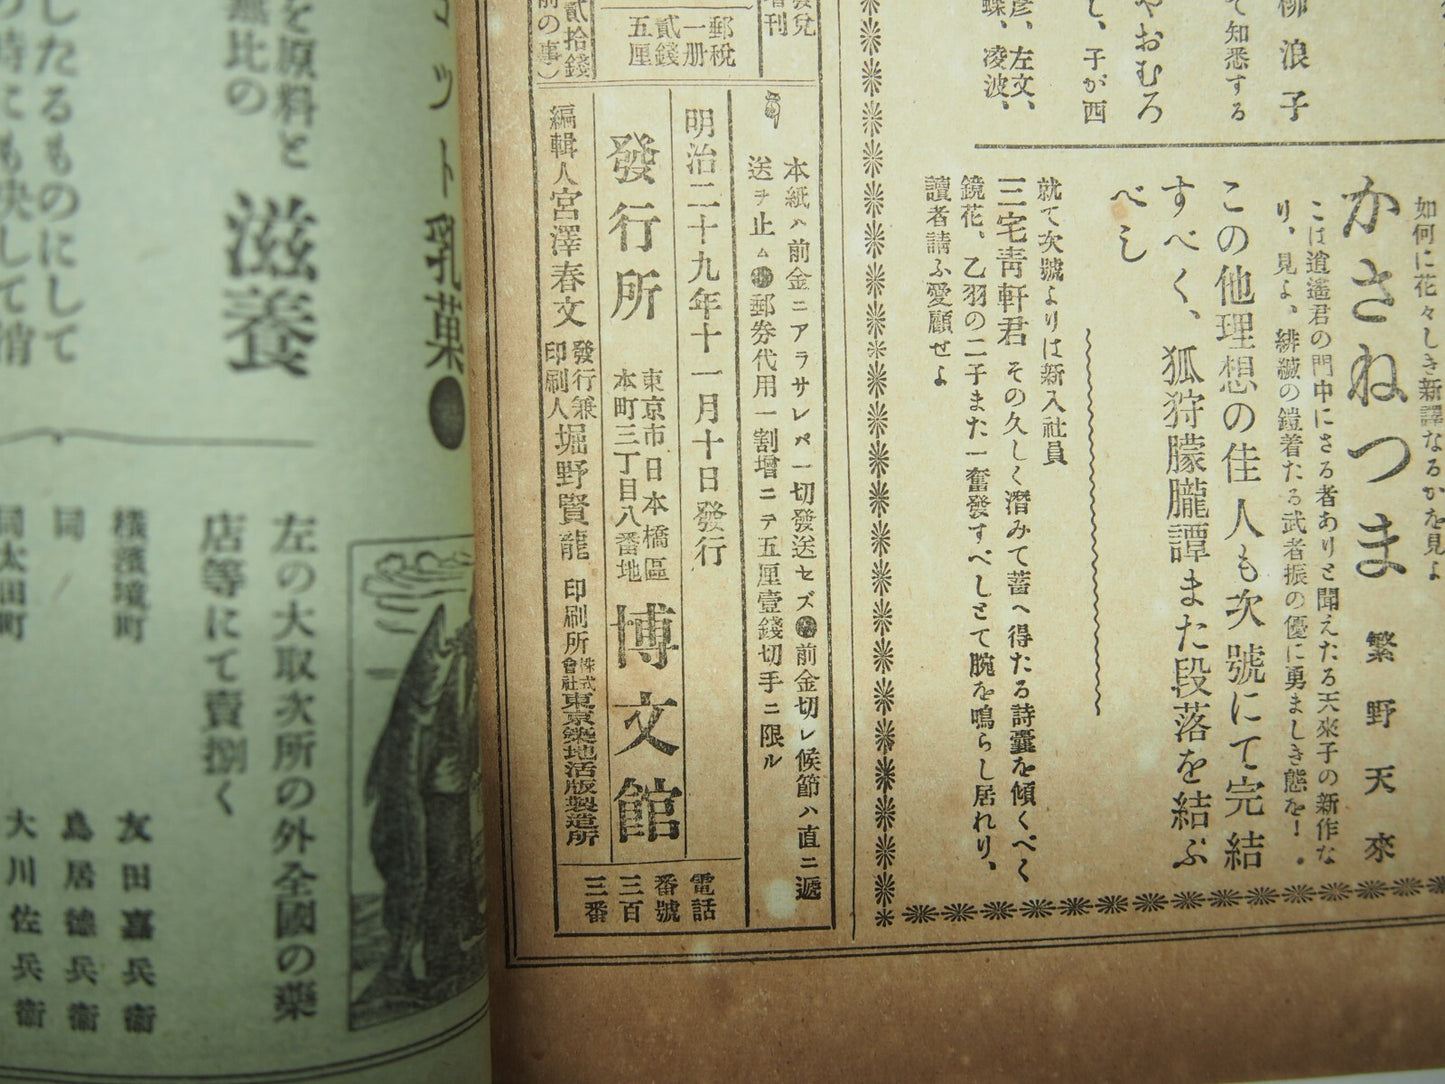 柳浪子
て知悉する
やおむろ
し、子が西
彦、左文、
蝶、凌波、
如何に花々しき新譯なるかを見よ
かさねつま
繁野天來
こは逍遙君の門中にさる者ありと聞えたる天來子の新作な
り、見よ、緋縅の鎧着たる武者振の優に勇ましき態を！
この他理想の佳人も次號にて完結
すべく、狐狩朦朧譚また段落を結ぶ
べし
就て次號よりは新入社員
三宅靑軒君 その久しく潛みて蓄へ得たる詩囊を傾くべく
鏡花、乙羽の二子また一奮發すべしとて腕を鳴らし居れり、
讀者請ふ愛顧せよ
發兌
增刊
郵稅
一册
貳錢
五厘
貳拾錢
前の事）
本紙ハ前金ニアラサレバ一切發送セズ●前金切レ候節ハ直ニ遞
送ヲ止ム●郵券代用一割增ニテ五厘壹錢切手ニ限ル
明治二十九年十一月十日發行
發行所
東京市日本橋區
本町三丁目八番地
博文館
編輯人宮澤春文
發行兼
印刷人
堀野賢龍
印刷所
株式
會社
東京築地活版製造所
電話
番號
三百
三番
ット乳菓
を原料と
無比の
滋養
したるものにして
の時にも決して消
左の大取次所の外全國の藥
店等にて賣捌く
橫濱境町
友田嘉兵衞
同
鳥居德兵衞
同太田町
大川佐兵衞